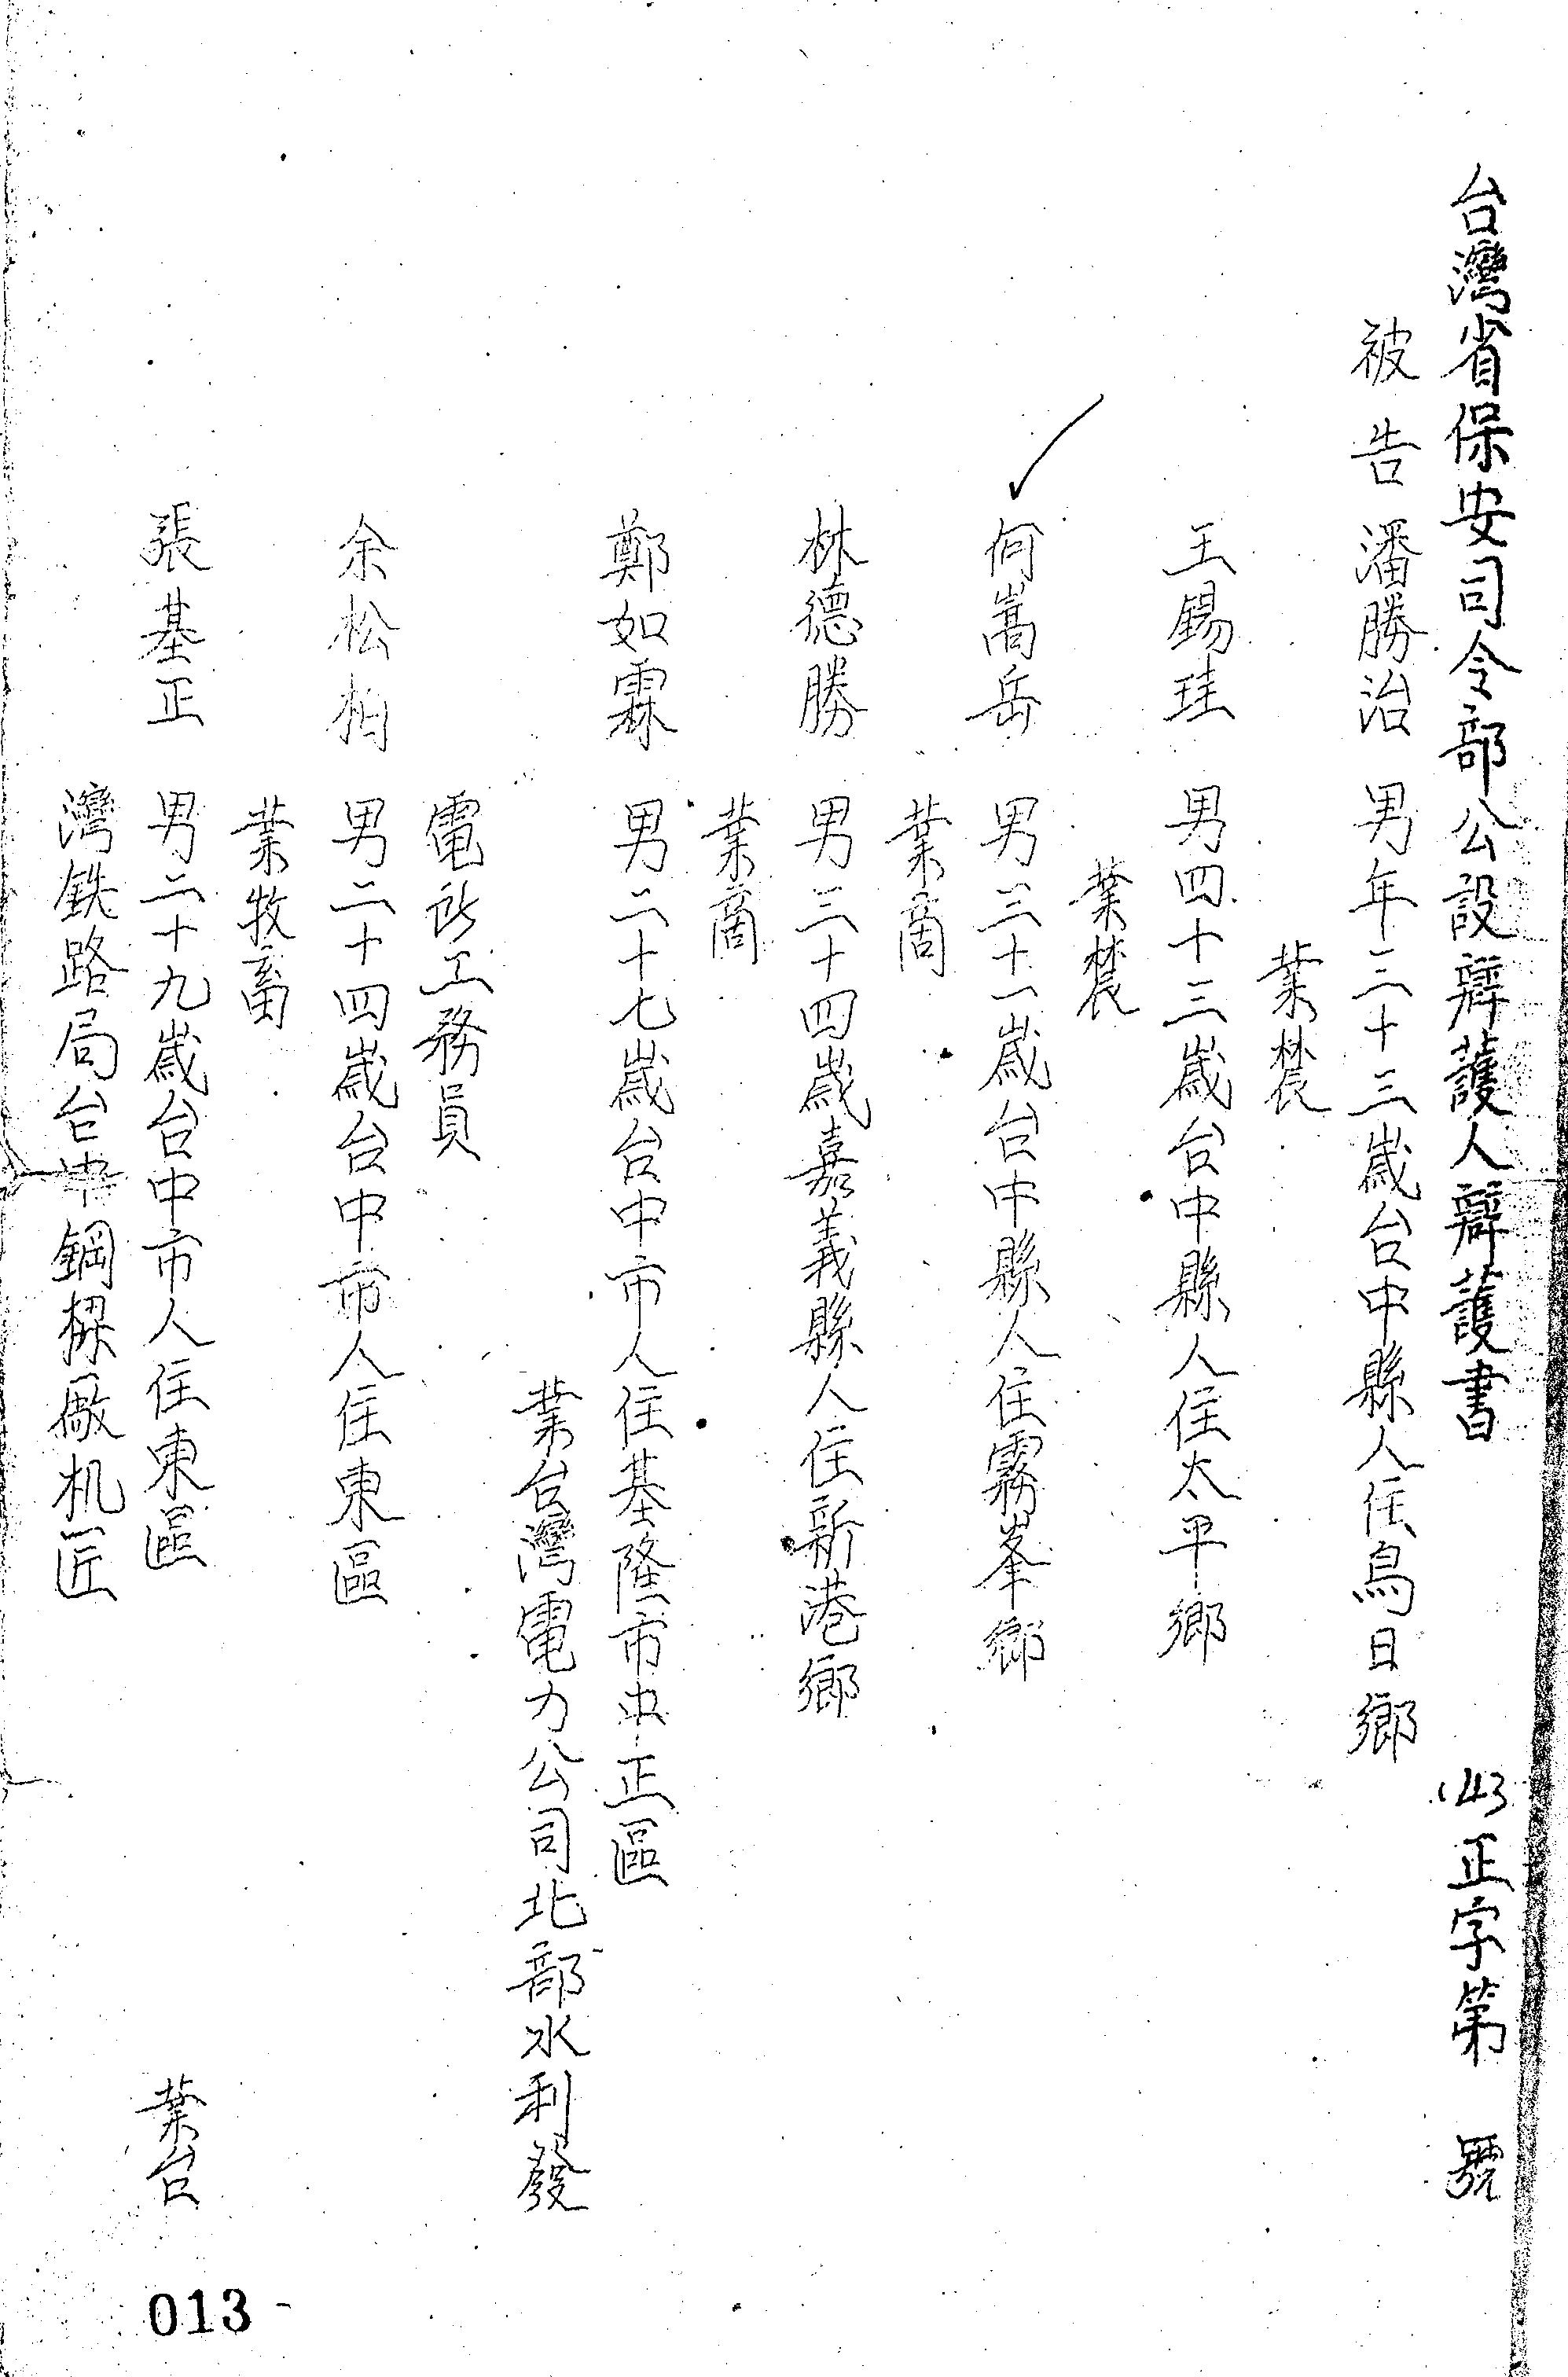 台灣省保安司令部公設辯護人辯護書 (43)正字第 號
被告 潘勝治 男年三十三歲台中縣人住烏日鄉
業農
王錫珪 男四十三歲台中縣人住太平鄉
業農
何嵩岳 男三十一歲台中縣人住霧峯鄉
業商
林德勝 男三十四歲嘉義縣人住新港鄉
業商
鄭如霖 男二十七歲台中市人住基隆市中正區
業台灣電力公司北部水利發
電所工務員
余松柏 男二十四歲台中市人住東區
業牧畜
張基正 男二十九歲台中市人住東區 業台
灣鉄路局台中鋼樑廠机匠
013